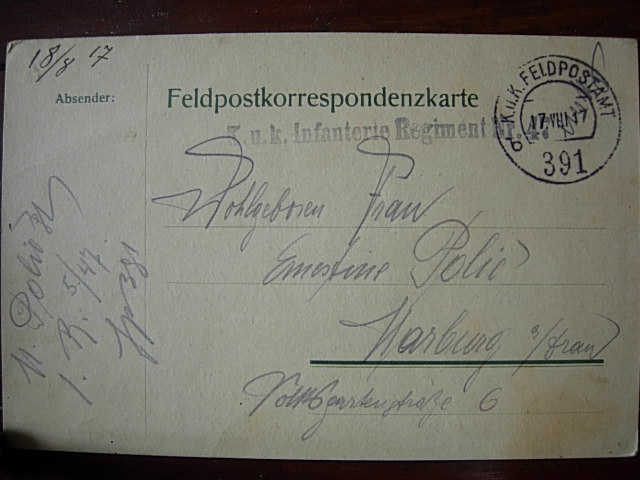 18/8 17
Absender:
Feldpostkorrespondenzkarte
K.u.K. FELDPOSTAMT
17.VIII.17
391
K. u. k. Infanterie Regiment Nr. 47
Wohlgeboren Frau
Ernestine Polić
Marburg a/Drau
Volksgartenstraße 6
Polić
I. R. 5/47
391